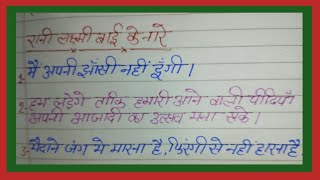 रानी लक्ष्मी बाई के नारे
1. मैं अपनी झाँसी नहीं दूँगी।
2. हम लड़ेंगे ताकि हमारी आने वाली पीढियाँ
अपनी आजादी का उत्सव मना सके।
3. मैदाने जंग मे मारना है, फिरंगी से नहीं हारना है